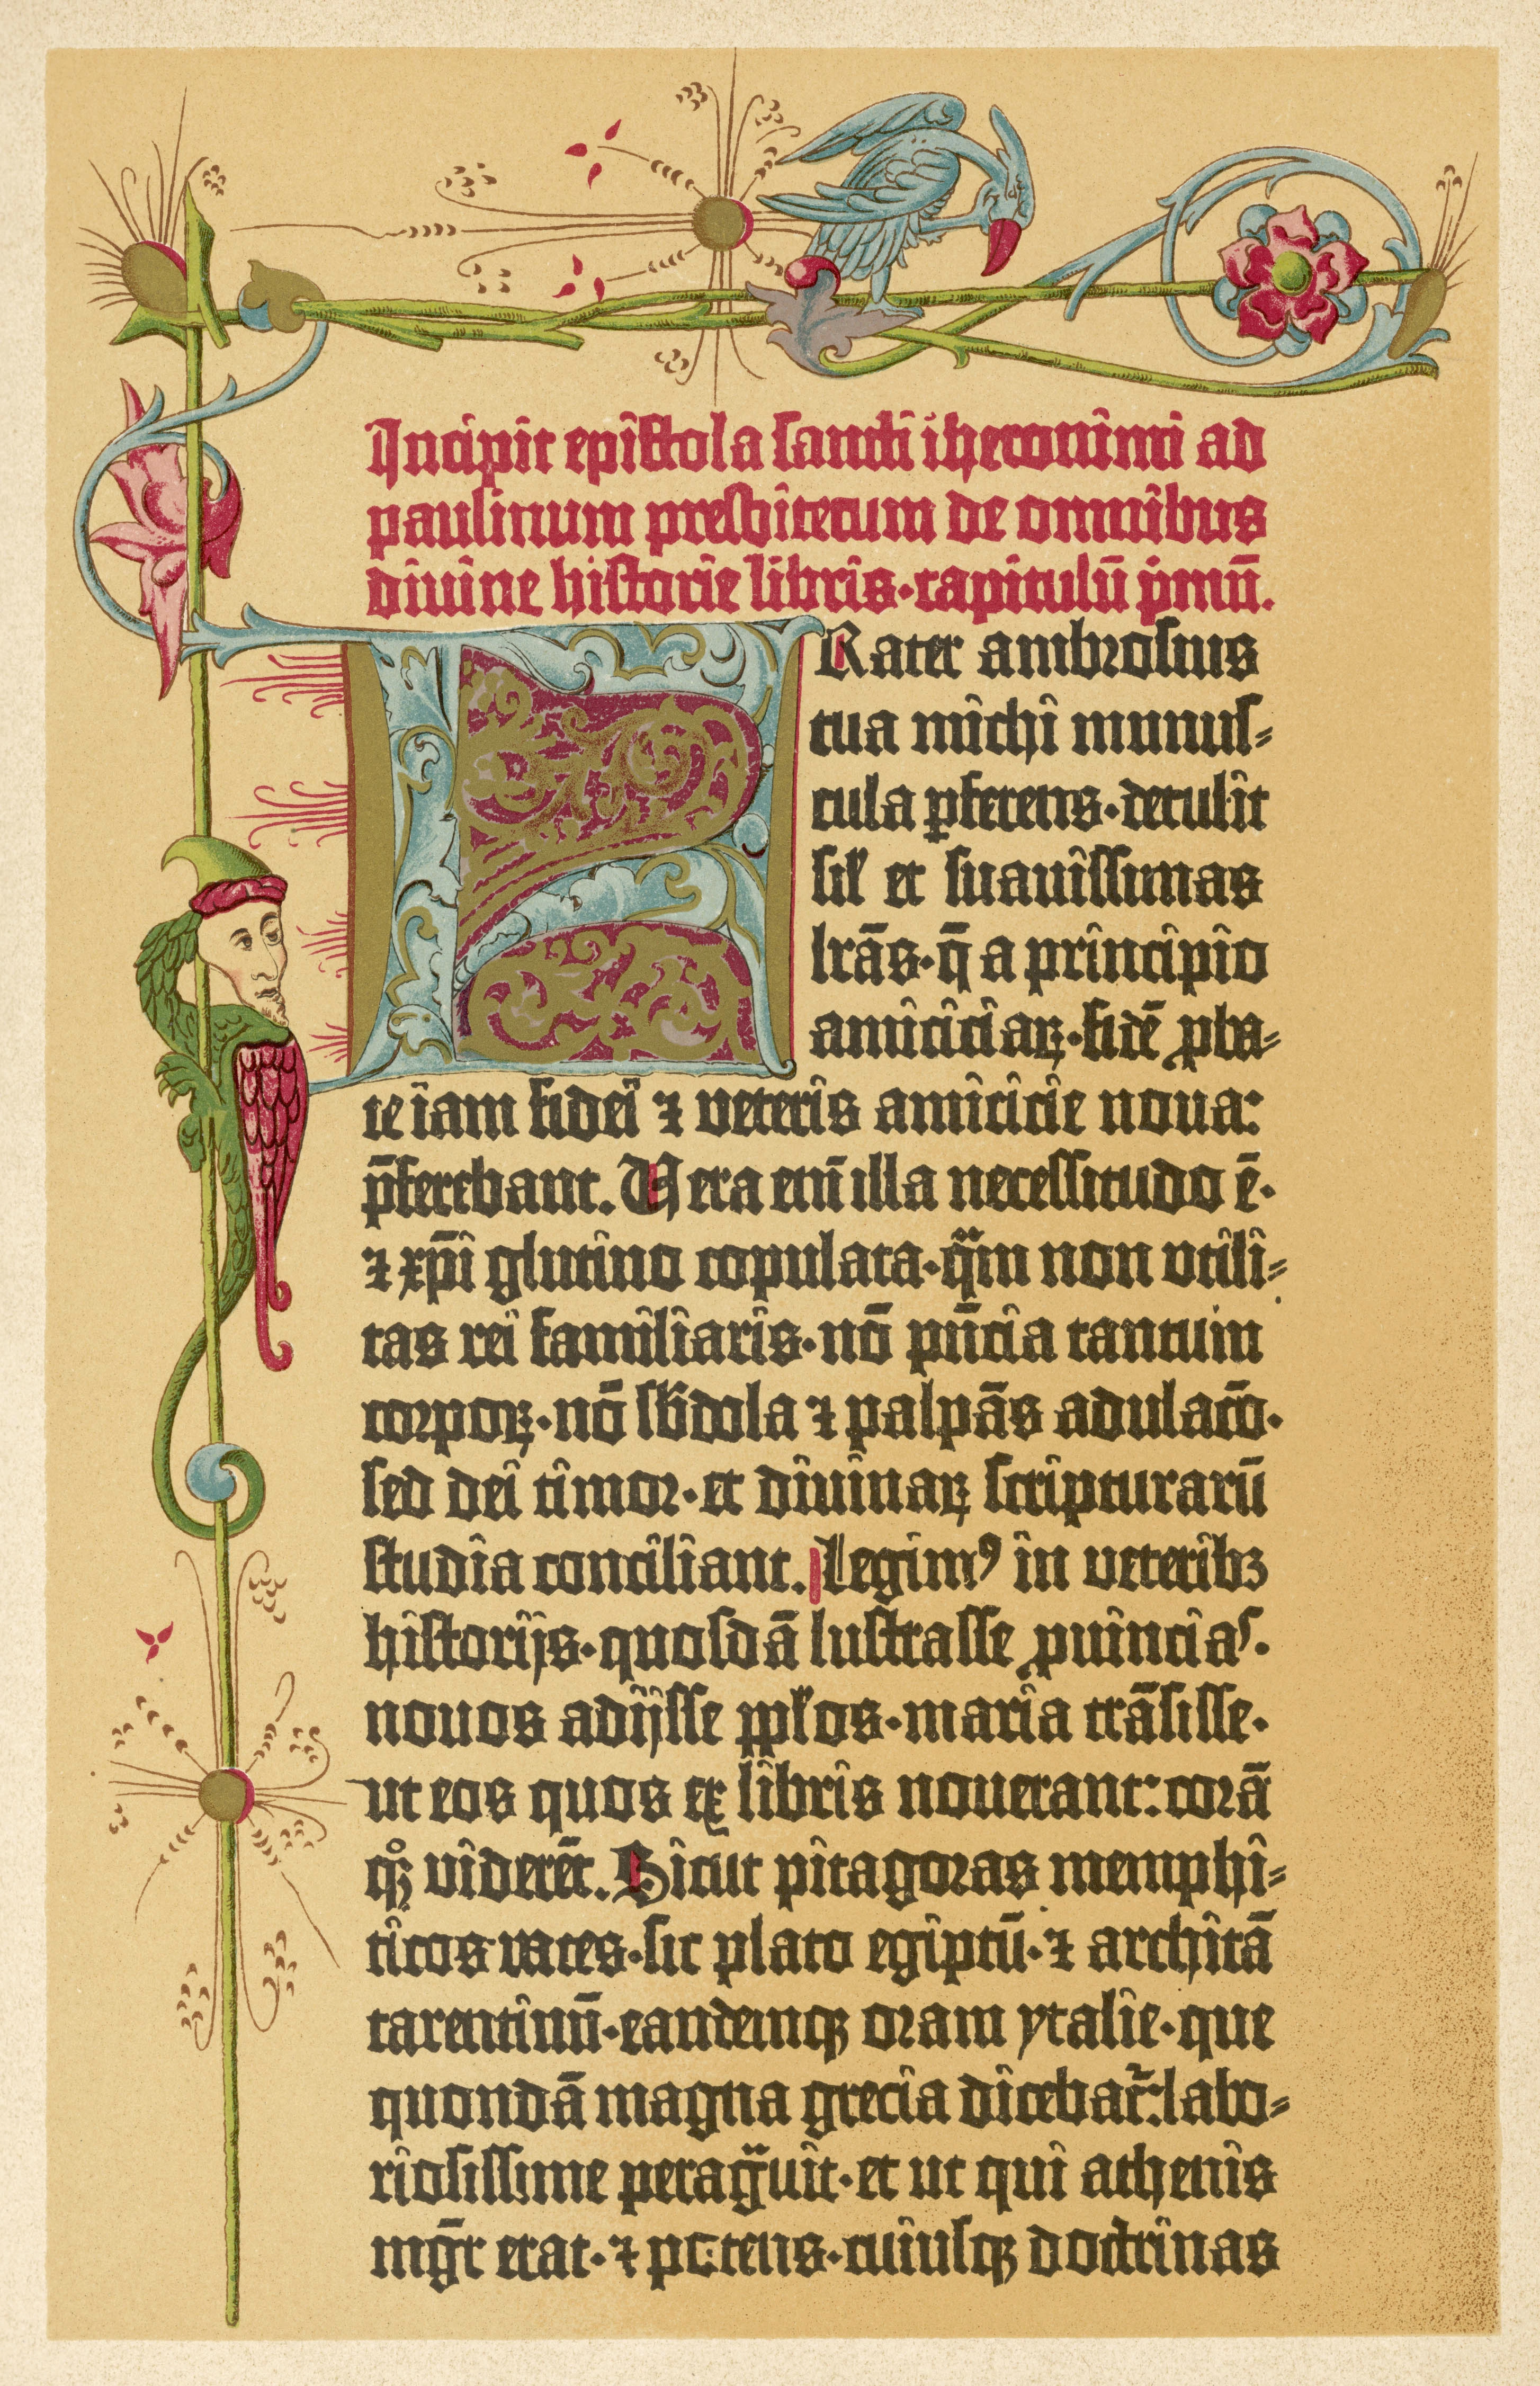 Incipit epistola sancti iheronimi ad
paulinum presbiterum de omnibus
diuine historie libris·capitulū p̄mū.
FRater ambrosius
tua michi munus⸗
cula ꝑferens·detulit
sil' et suauissimas
lr̄as·q̄ a principio
amiciciaꝝ·fidē ꝓba⸗
te iam fidei ⁊ veteris amicicie noua:
p̄ferebant. Vera eni̅ illa necessitudo ē·
⁊ xp̄i glutino copulata·qͣm non vtili⸗
tas rei familiaris·nō pn̄cia tantum
corpoꝝ·nō sb̓dola ⁊ palpās adulac̄o·
sed dei timor·et diuinaꝝ scripturarū
studia conciliant. Legimꝰ in veteribꝫ
historijs·quosdā lustrasse ꝓuincias·
nouos adijsse pp̄los·maria trāsisse·
ut eos quos ex libris nouerant: corā
qꝫ viderēt. Sicut pitagoras memphi⸗
ticos vates·sic plato egiptū·⁊ architā
tarentinū·eandemqꝫ oram ytalie·que
quondā magna grecia dicebat᷑: labo⸗
riosissime peragͣuit·et ut qui athenis
mgr̄ erat·⁊ potens·cuiusqꝫ doctrinas